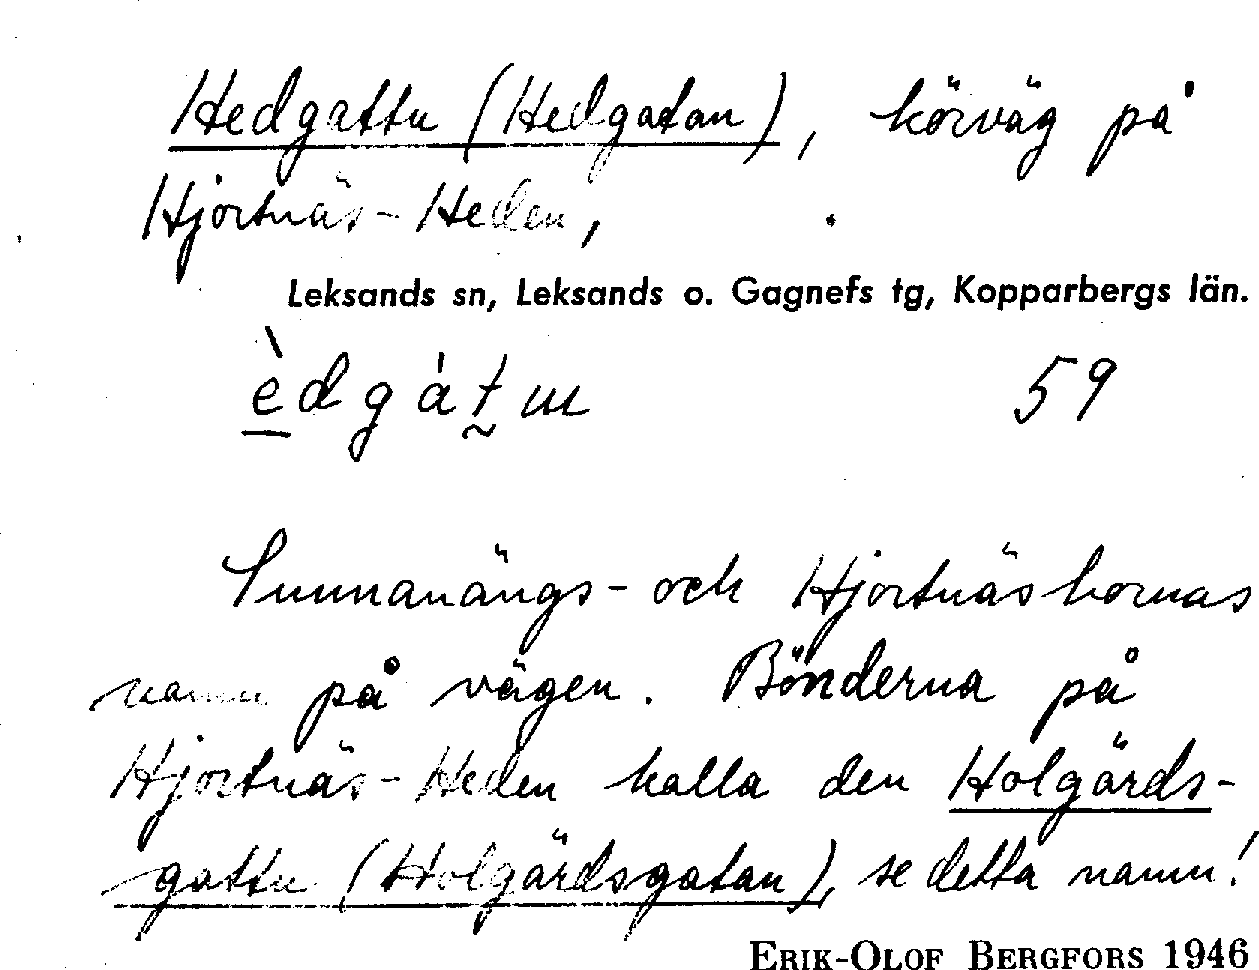 Hedgattu (Hedgatan), körväg på
Hjortnäs-Heden,
Leksands sn, Leksands o. Gagnefs tg, Kopparbergs län.
èdgátm 59
Sunnanängs- och Hjortnäsbornas
namn på vägen. Bönderna på
Hjortnäs-Heden kalla den Holgärds-
gattu (Holgärdsgatan), se detta namn!
ERIK-OLOF BERGFORS 1946